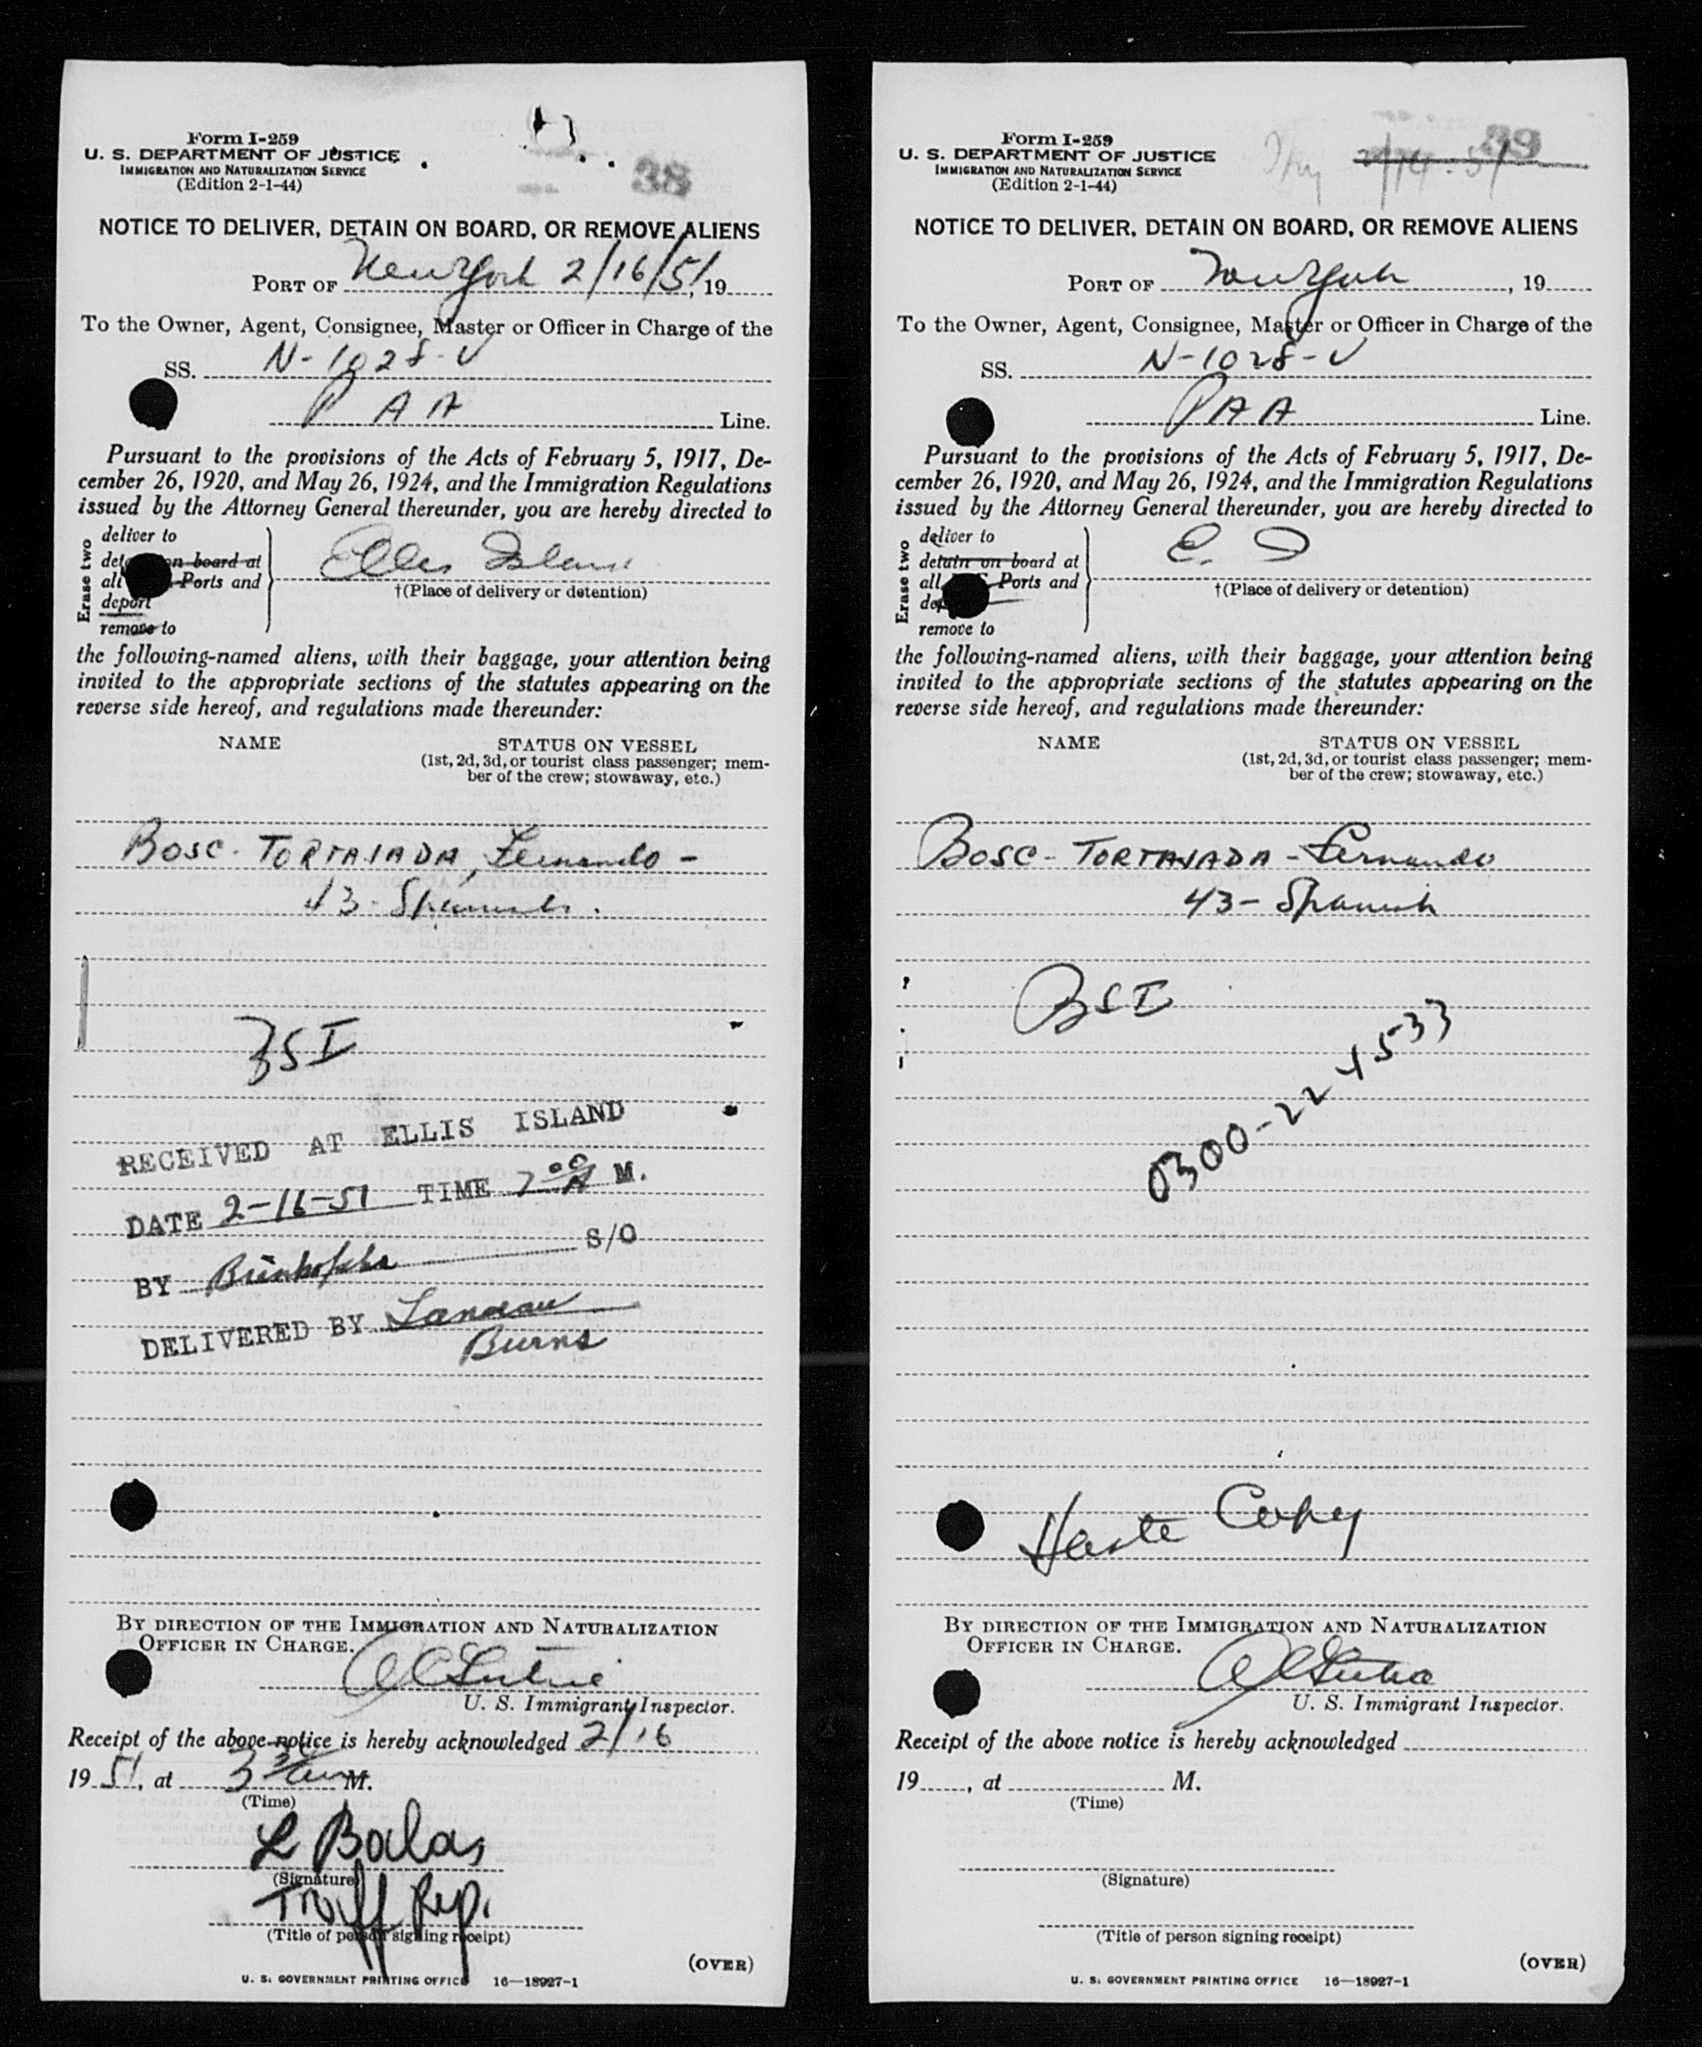 Form I-259
U. S. DEPARTMENT OF JUSTICE
IMMIGRATION AND NATURALIZATION SERVICE
(Edition 2-1-44)
38
NOTICE TO DELIVER, DETAIN ON BOARD, OR REMOVE ALIENS
PORT OF New York 2/16/51, 19
To the Owner, Agent, Consignee, Master or Officer in Charge of the
SS. N-1028-V
PAA Line.
Pursuant to the provisions of the Acts of February 5, 1917, De-
cember 26, 1920, and May 26, 1924, and the Immigration Regulations
issued by the Attorney General thereunder, you are hereby directed to
Erase two
deliver to
on board at
all Ports and
deport
remove to
Ellis Island
†(Place of delivery or detention)
the following-named aliens, with their baggage, your attention being
invited to the appropriate sections of the statutes appearing on the
reverse side hereof, and regulations made thereunder:
NAME STATUS ON VESSEL
(1st, 2d, 3d, or tourist class passenger; mem-
ber of the crew; stowaway, etc.)
BOSC-TORTAJADA, Fernando -
43 - Spanish.
BSI
RECEIVED AT ELLIS ISLAND
DATE 2-16-51 TIME 7 00 A M.
BY S/O
DELIVERED BY Landau
Burns
BY DIRECTION OF THE IMMIGRATION AND NATURALIZATION
OFFICER IN CHARGE.
U. S. Immigrant Inspector.
Receipt of the above notice is hereby acknowledged 2/16
1951, at 3 30 am M.
(Time)
L Balas
(Signature)
Traff Rep.
(Title of person signing receipt)
(OVER)
U. S. GOVERNMENT PRINTING OFFICE 16—18927-1
Form I-259
U. S. DEPARTMENT OF JUSTICE
IMMIGRATION AND NATURALIZATION SERVICE
(Edition 2-1-44)
39
2/14-51
NOTICE TO DELIVER, DETAIN ON BOARD, OR REMOVE ALIENS
PORT OF New York, 19
To the Owner, Agent, Consignee, Master or Officer in Charge of the
SS. N-1028-V
PAA Line.
Pursuant to the provisions of the Acts of February 5, 1917, De-
cember 26, 1920, and May 26, 1924, and the Immigration Regulations
issued by the Attorney General thereunder, you are hereby directed to
Erase two
deliver to
detain on board at
all Ports and
remove to
E. I
†(Place of delivery or detention)
the following-named aliens, with their baggage, your attention being
invited to the appropriate sections of the statutes appearing on the
reverse side hereof, and regulations made thereunder:
NAME STATUS ON VESSEL
(1st, 2d, 3d, or tourist class passenger; mem-
ber of the crew; stowaway, etc.)
BOSC-TORTAJADA-Fernando
43 - Spanish
BSI
0300-224533
Haste Copy
BY DIRECTION OF THE IMMIGRATION AND NATURALIZATION
OFFICER IN CHARGE.
U. S. Immigrant Inspector.
Receipt of the above notice is hereby acknowledged
19, at M.
(Time)
(Signature)
(Title of person signing receipt)
(OVER)
U. S. GOVERNMENT PRINTING OFFICE 16—18927-1